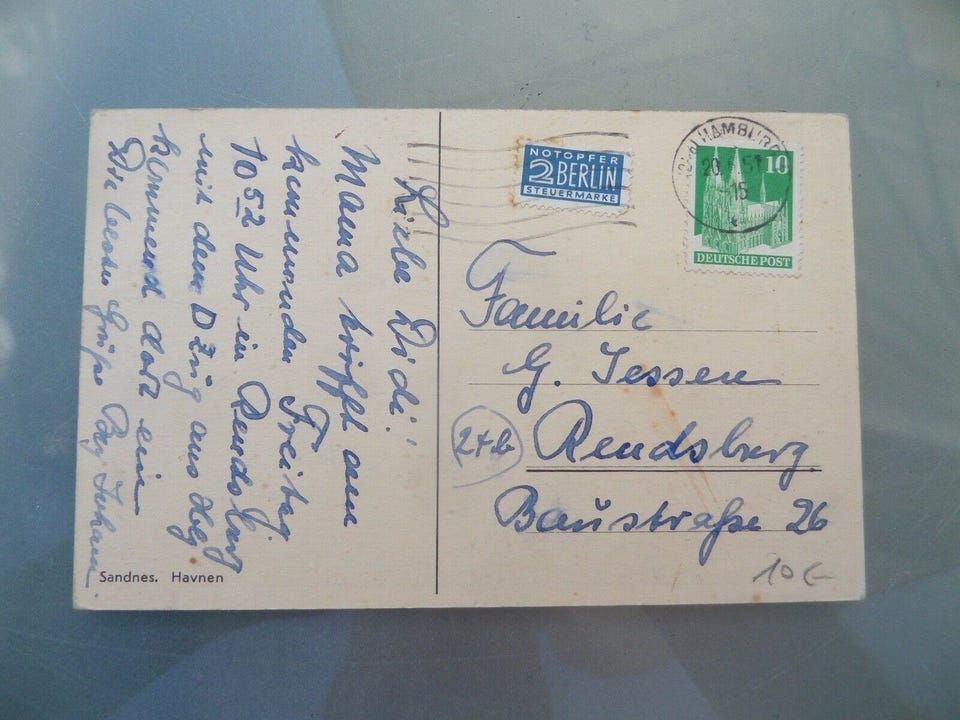 Liebe Didi!
Mama trifft am
kommenden Freitag
10 52 Uhr in Rendsburg
mit dem D Zug aus Hbg
kommend dort ein
Die besten Grüße
Sandnes. Havnen
NOTOPFER
2 BERLIN
STEUERMARKE
HAMBURG
51
15
10
DEUTSCHE POST
Familie
G. Jessen
(24b) Rendsburg.
Baustraße 26
10 €